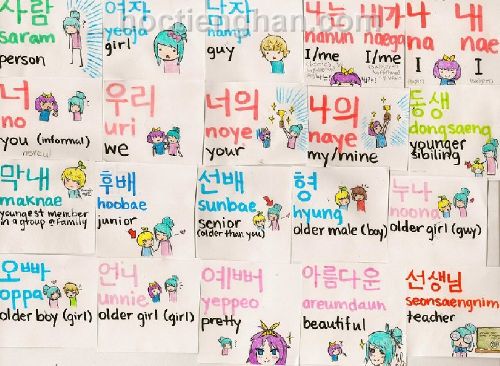 hoctienghan.com
사람
saram
person
여자
yeoja
girl
남자
namja
guy
나는
nanun
I/me
내가
naega
I/me
나
na
I
내
nae
I
너
no
you (informal)
우리
uri
we
너의
noye
your
나의
naye
my/mine
동생
dongsaeng
younger
sibiling
막내
maknae
youngest member
in a group or family
후배
hoobae
junior
선배
sunbae
senior
(older than you)
형
hyung
older male (boy)
누나
noona
older girl (guy)
오빠
oppa
older boy (girl)
언니
unnie
older girl (girl)
예뻐
yeppeo
pretty
아름다운
areumdaun
beautiful
선생님
seonsaengnim
teacher